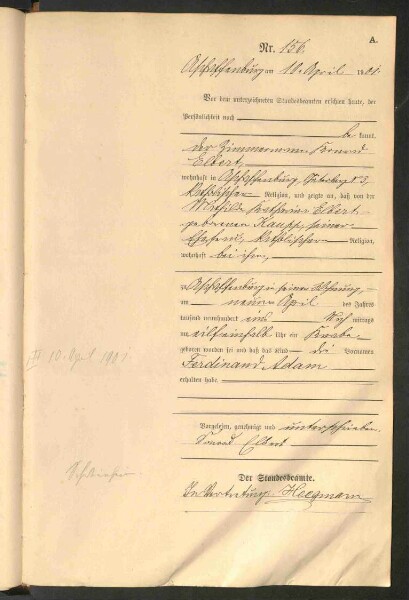 A.
Nr. 156.
Aschaffenburg am 10. April 1901.
Vor dem unterzeichneten Standesbeamten erschien heute, der
Persönlichkeit nach
be kannt,
der Zimmermann Konrad
Elbert,
wohnhaft in Aschaffenburg,
katholischer Religion, und zeigte an, daß von der
Mathilde Katharina Elbert
geborenen Kaupp, seiner
Ehefrau, katholischer Religion,
wohnhaft bei ihm,
zu Aschaffenburg in seiner Wohnung,
am neunten April des Jahres
tausend neunhundert eins Nach mittags
um elfeinhalb Uhr ein Knabe
geboren worden sei und daß das Kind die Vornamen
Ferdinand Adam
erhalten habe.
Vorgelesen, genehmigt und unterschrieben
Konrad Elbert
Der Standesbeamte.
In Vertretung: Heegmann
10. April 1901